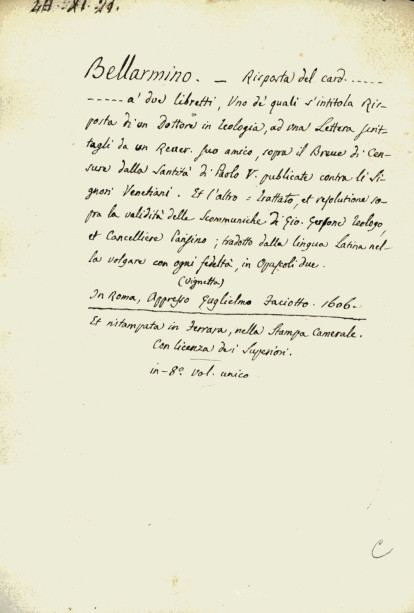 20. XI. 21.
Bellarmino. — Risposta del card......
...... a' due libretti, Uno de' quali s'intitola Ris-
posta di un Dottore in Teologia, ad una Lettera scrit-
tagli da un Rever. suo amico, sopra il Breve di Cen-
sure dalla Santità di Paolo V. publicate contra li Si-
gnori Venetiani. Et l'altro = Trattato, et resolutione so-
pra la validità delle Scommuniche di Gio. Gersone Teologo,
et Cancelliere Parisino; tradotto dalla lingua Latina nel-
la volgare con ogni fedeltà, in Opuscoli due.
(Vignetta)
In Roma, Appresso Guglielmo Faciotto. 1606.
Et ristampata in Ferrara, nella Stampa Camerale.
Con licenza de i Superiori.
in-8º. Vol. unico
C